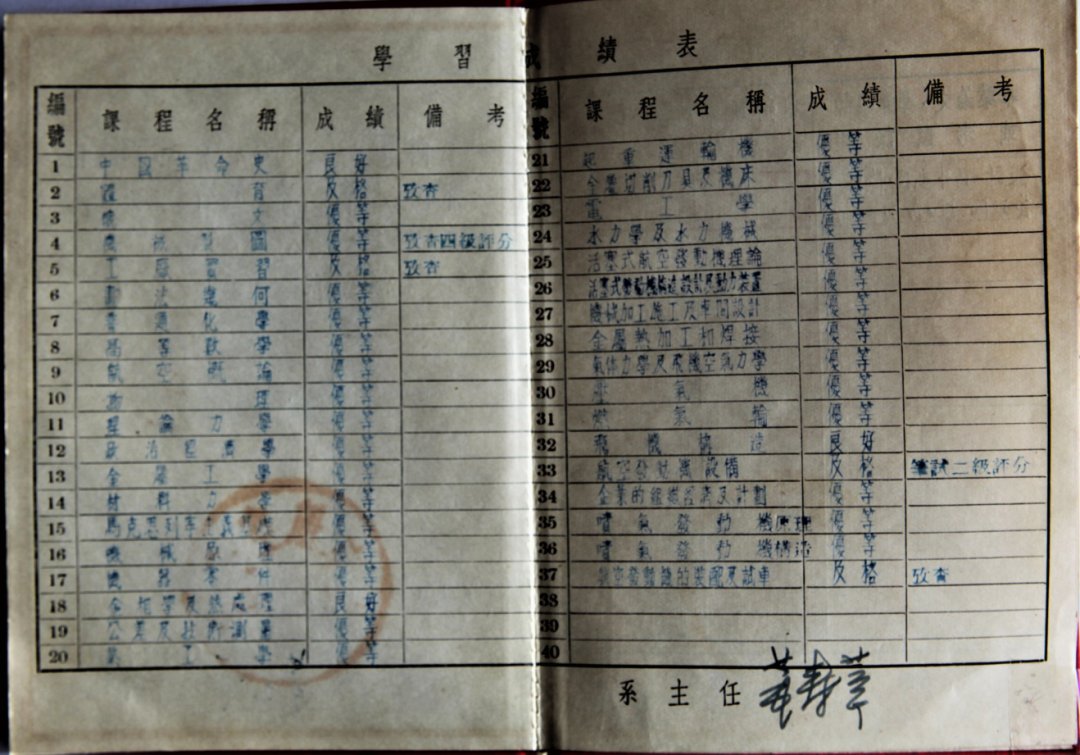 學習成績表
編號 課程名稱 成績 備考
1 中國革命史 良好
2 體育 及格 攷查
3 俄文 優等
4 機械製圖 優等 攷查四級評分
5 工廠實習 及格 攷查
6 畫法幾何 優等
7 普通化學 優等
8 高等數學 優等
9 航空概論 優等
10 物理 優等
11 理論力學 優等
12 政治經濟學 優等
13 金屬工學 優等
14 材料力學 優等
15 馬克思列寧主義 優等
16 機械原理 優等
17 機器零件 優等
18 金相學及熱處理 良好
19 公差及技術測量 優等
20 熱工學 優等
編號 課程名稱 成績 備考
21 起重運輸機 優等
22 金屬切削刀具及機床 優等
23 電工學 優等
24 水力學及水力機械 優等
25 活塞式航空發動機理論 優等
26 活塞式發動機構造設計及動力裝置 優等
27 機械加工施工及車間設計 優等
28 金屬熱加工和焊接 優等
29 氣体力學及飛機空氣力學 優等
30 氣機 優等
31 燃氣輪 優等
32 飛機構造 良好
33 航空發動機設備 及格 筆試二級評分
34 企業的組織經濟及計劃 優等
35 噴氣發動機原理 優等
36 噴氣發動機構造 優等
37 航空發動機的裝配及試車 及格 攷查
38
39
40
系主任